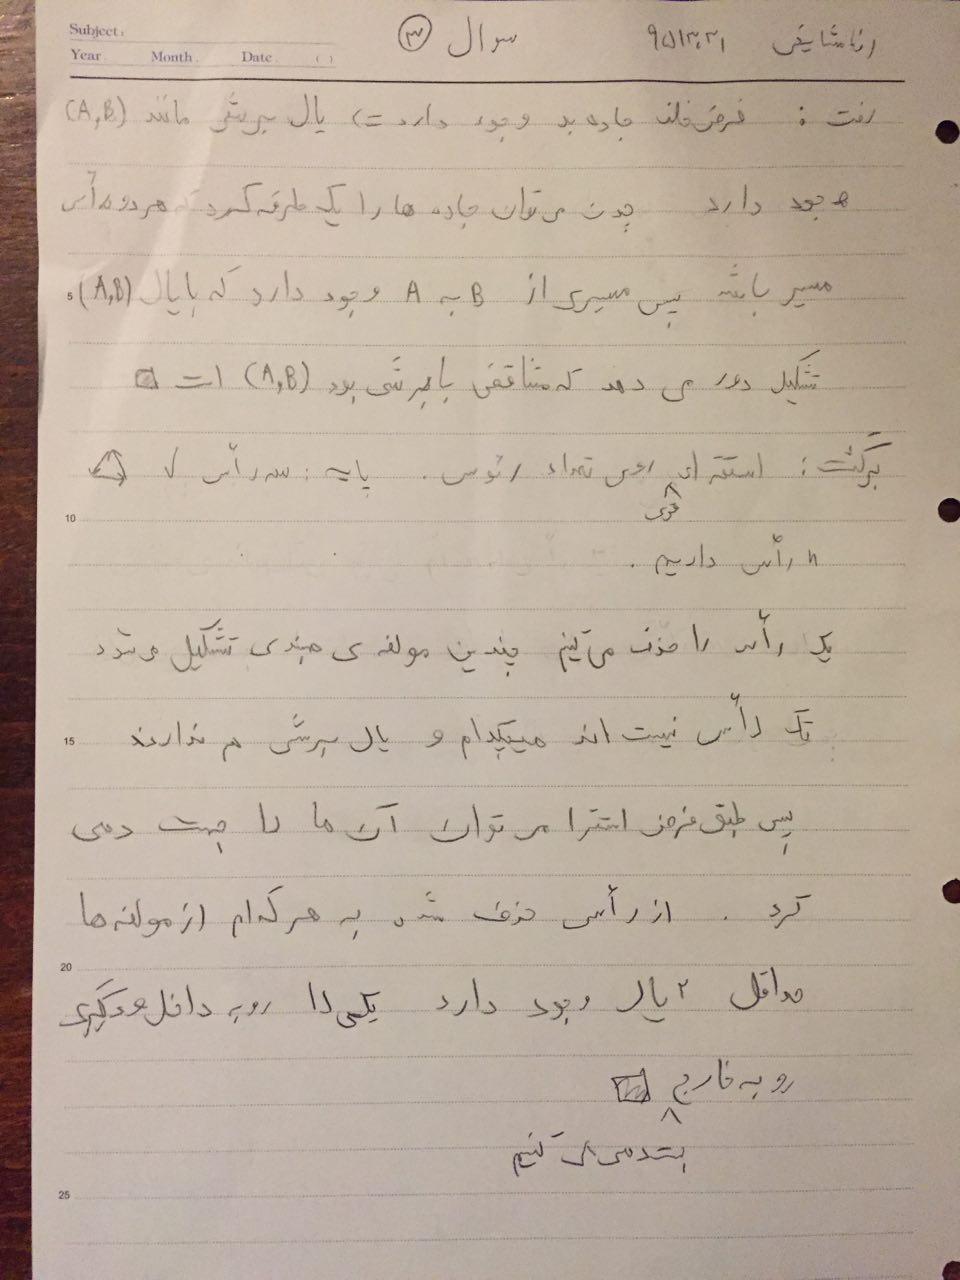 Subject:
Year. Month. Date. ( )
سوال ③
رفت : فرض خلف جاده بد وجود دارد یال برشی مانند (A,B)
وجود دارد چون می توان جاده ها را یک طرفه کرد که هر دو رأس
5 مسیر باشد پس مسیری از B به A وجود دارد که با یال (A,B)
تشکیل دور می دهد که متناقض با برشی بود (A,B) است
برگشت : استقرای قوی روی تعداد رئوس . پایه : سه رأس ✓
10
n رأس داریم .
یک رأس را حذف می کنیم چندین مولفه ی همبندی تشکیل می شود
15 تک رأس نیست اند هیچکدام و یال برشی هم ندارند
پس طبق فرض استقرا می توان آن ها را جهت دهی
کرد . از رأس حذف شده به هر کدام از مولفه ها
20
حداقل ۲ یال وجود دارد یکی را رو به داخل و دیگری
رو به خارج
جهت دهی می کنیم
25